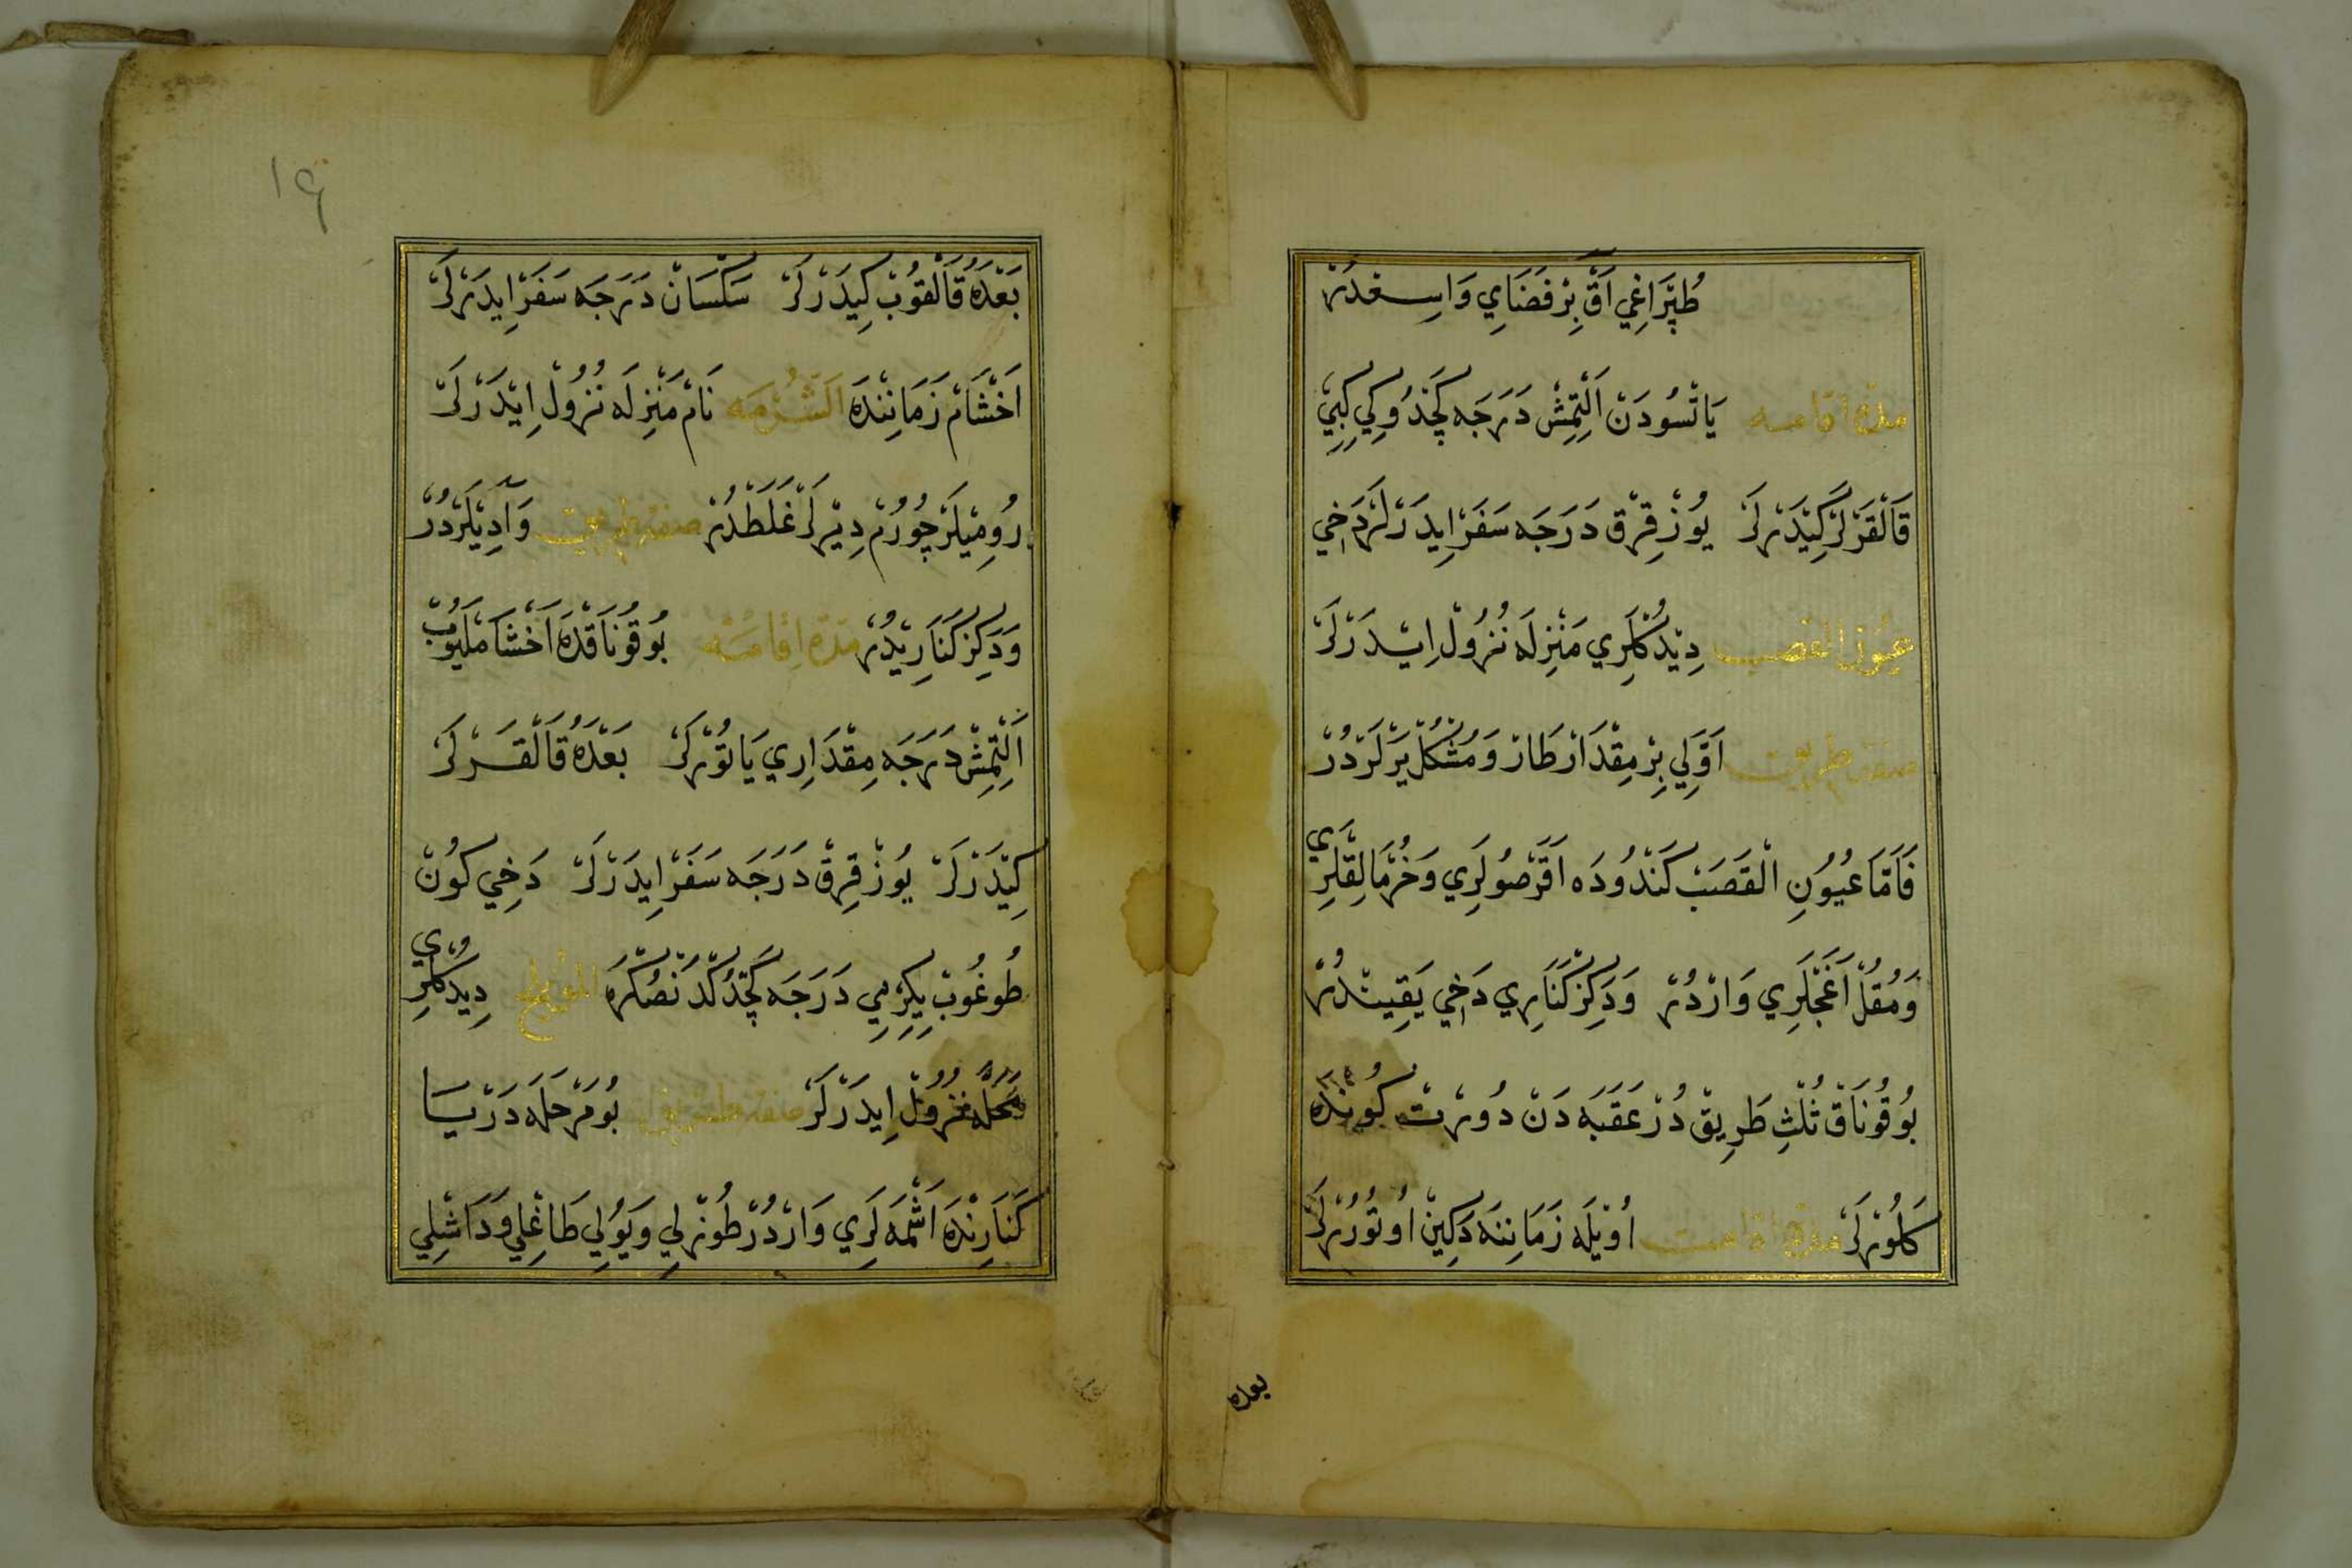 طُپْرَاغِي اَقْ بِرْ فَضَايِ وَاسِعْدُرْ
مدّة اقامه يَاتْسُودَنْ اَلْتِمِشْ دَرَجَه كَچْدُوكِي كِبِي
قَالْقَرْلَرْ كِيْدَرْلَرْ يُوزْ قِرْقْ دَرَجَه سَفَرْ اِيدَرْلَرْ دَخِي
عيُون القصب دِيْدُكْلَرِي مَنْزِلَه نُزُولْ اِيدَرْلَرْ
صفت طريق اَوَّلِي بِرْ مِقْدَارْ طَارْ وَمُشْكُلْ يَرْلَرْدُرْ
فَاَمَّا عُيُونِ الْقَصَبْ كَنْدُودَه اَقَرْ صُولَرِي وَخُرْمَالِقْلَرِي
وَمُقُلْ اَغَجْلَرِي وَارْدُرْ وَدَكِزْ كَنَارِي دَخِي يَقِينْدُرْ
بُو قُونَاقْ ثُلْثِ طَرِيقْ دُرْ عَقَبَه دَنْ دُورْتْ كُونْدَه
كَلُورْلَرْ مدّة اقامت اُوْيْلَه زَمَانِنَه دَكِينْ اُوتُورُرْلَرْ
بعده
١٩
بَعْدَهُ قَالْقُوبْ كِيدَرْلَرْ سَكْسَانْ دَرَجَه سَفَرْ اِيدَرْلَرْ
اَخْشَامْ زَمَانِنْدَه اَلشُّرْمَه نَامْ مَنْزِلَه نُزُولْ اِيْدَرْلَرْ
رُومِيْلَرْ چُورُمْ دِيْرلَرْ غَلَطْدُرْ صفت طريق وَادِيْلَرْدُرْ
وَدَكِزْ كَنَارِيْدُرْ مدّة اِقامَتْه بُو قُونَاقْدَه اَخْشَامْلَيُوبْ
اَلْتِمِشْ دَرَجَه مِقْدَارِي يَاتُورْلَرْ بَعْدَهُ قَالْقَرْلَرْ
كِيْدَرْلَرْ يُوزْ قِرْقْ دَرَجَه سَفَرْ اِيدَرْلَرْ دَخِي كُونْ
طُوغُوبْ يِكِرْمِي دَرَجَه كَچْدُكْدَنْصُكْرَه المويلح دِيدُكْلَرِي
مَحَلَّه نُزُولْ اِيدَرْلَرْ صفت طريق بُو مَرْحَلَه دَرْيَا
كَنَارِنْدَه اَشْمَه لَرِي وَارْدُرْ طُوزْلِي وَيُولِي طَاغْلِي وَدَاشْلِي